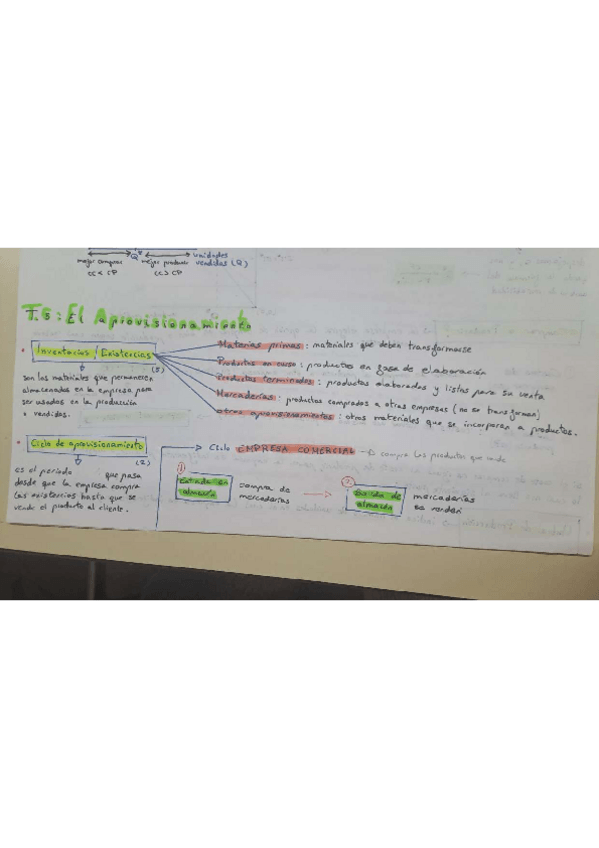 mejor comprar Q* mejor producir
unidades
vendidas (Q)
CC < CP CC > CP
T.5: El Aprovisionamiento
Inventarios / Existencias
(5)
son los materiales que permanecen
almacenados en la empresa para
ser usados en la producción
o vendidos.
Materias primas: materiales que deben transformarse
Productos en curso: productos en fase de elaboración
Productos terminados: productos elaborados y listos para su venta
Mercaderías: productos comprados a otras empresas (no se transforman)
otros aprovisionamientos: otros materiales que se incorporan a productos.
Ciclo de aprovisionamiento
(2)
es el periodo que pasa
desde que la empresa compra
las existencias hasta que se
vende el producto al cliente.
Ciclo EMPRESA COMERCIAL → compra los productos que vende
1
Entrada en
almacén
compra de
mercaderías
2
Salida de
almacén
mercaderías
se venden